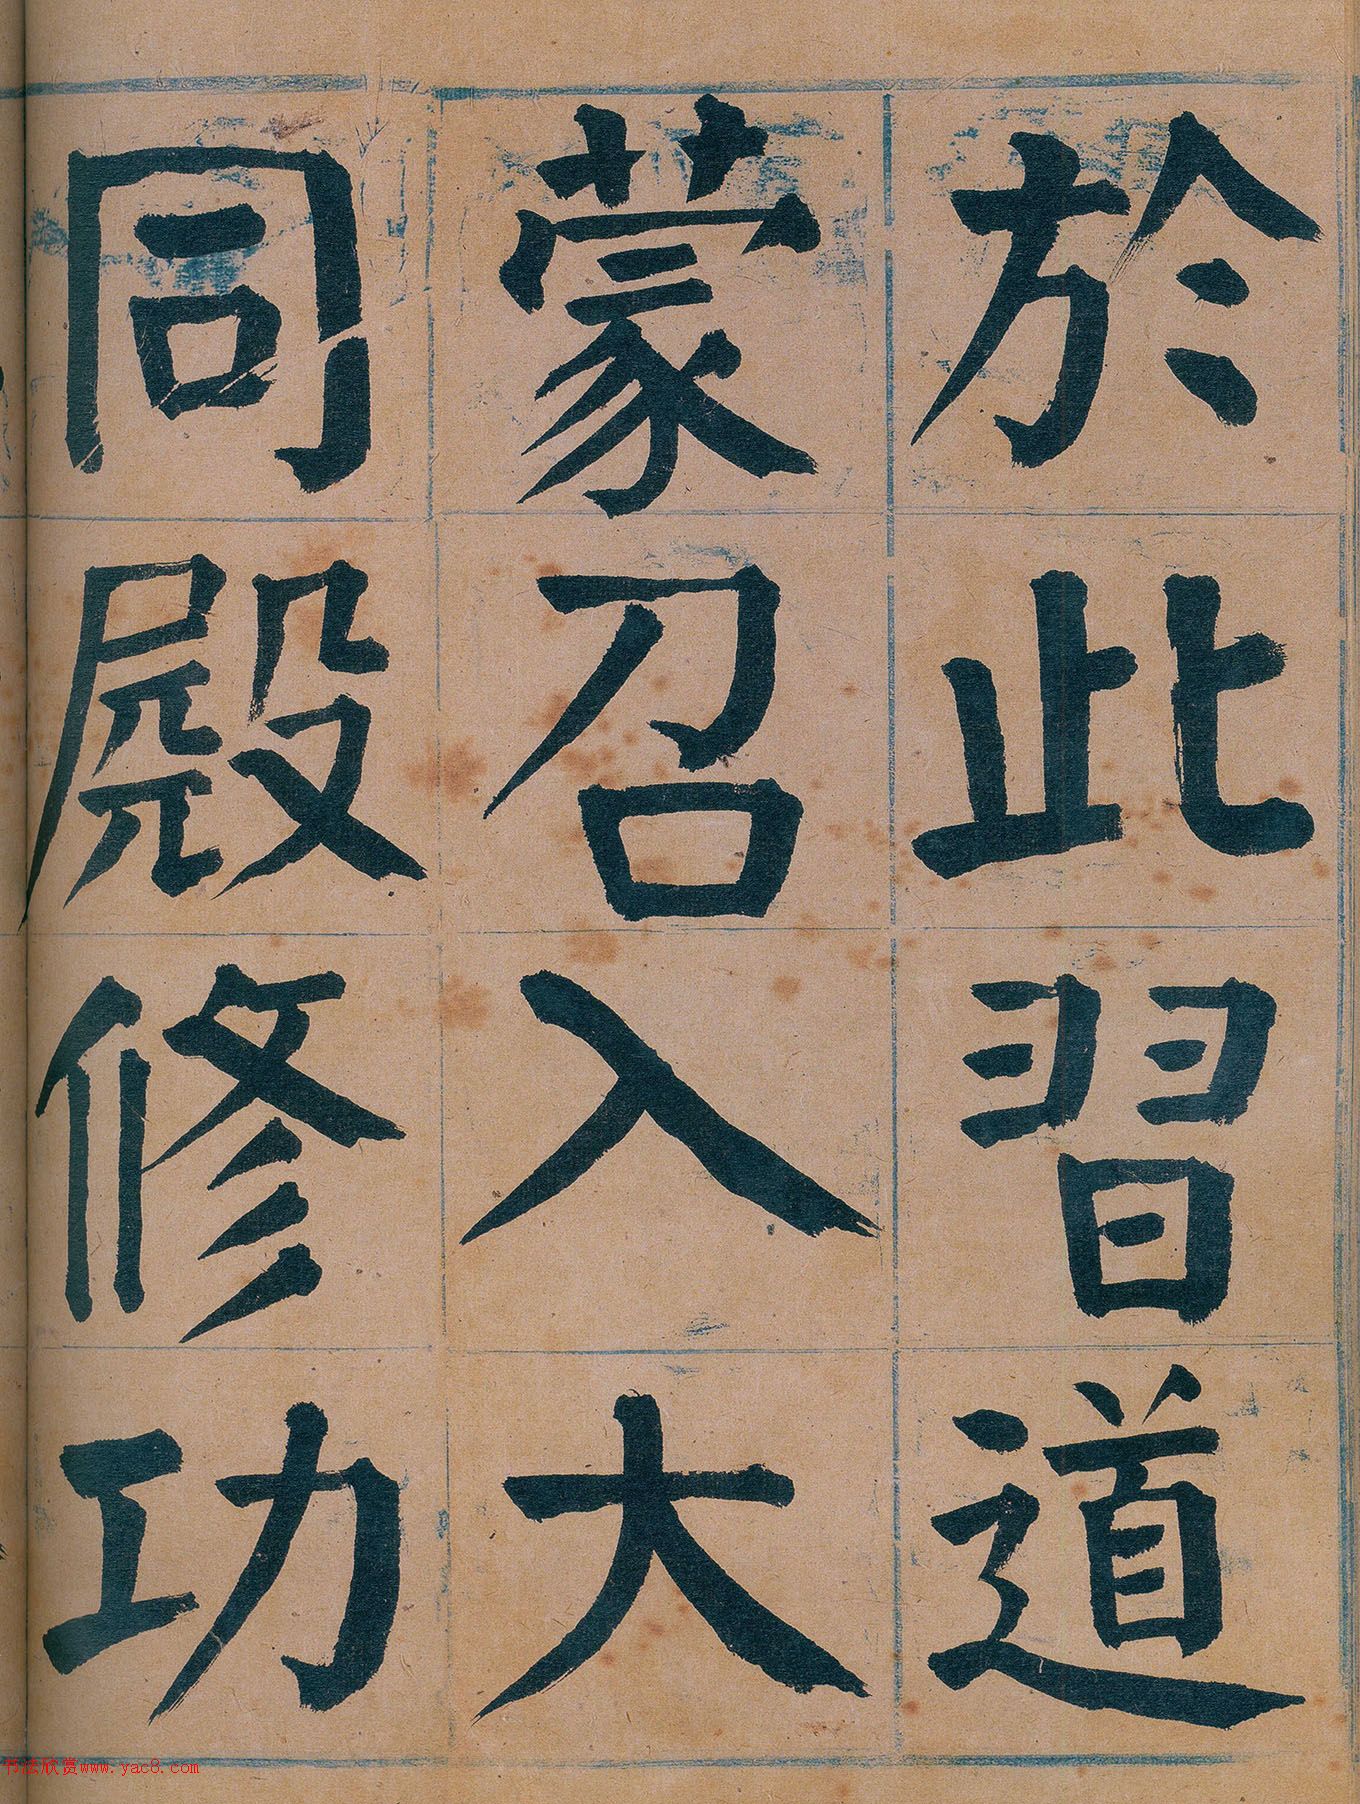 於此習道
蒙召入大
同殿修功
书法欣赏www.yac8.com